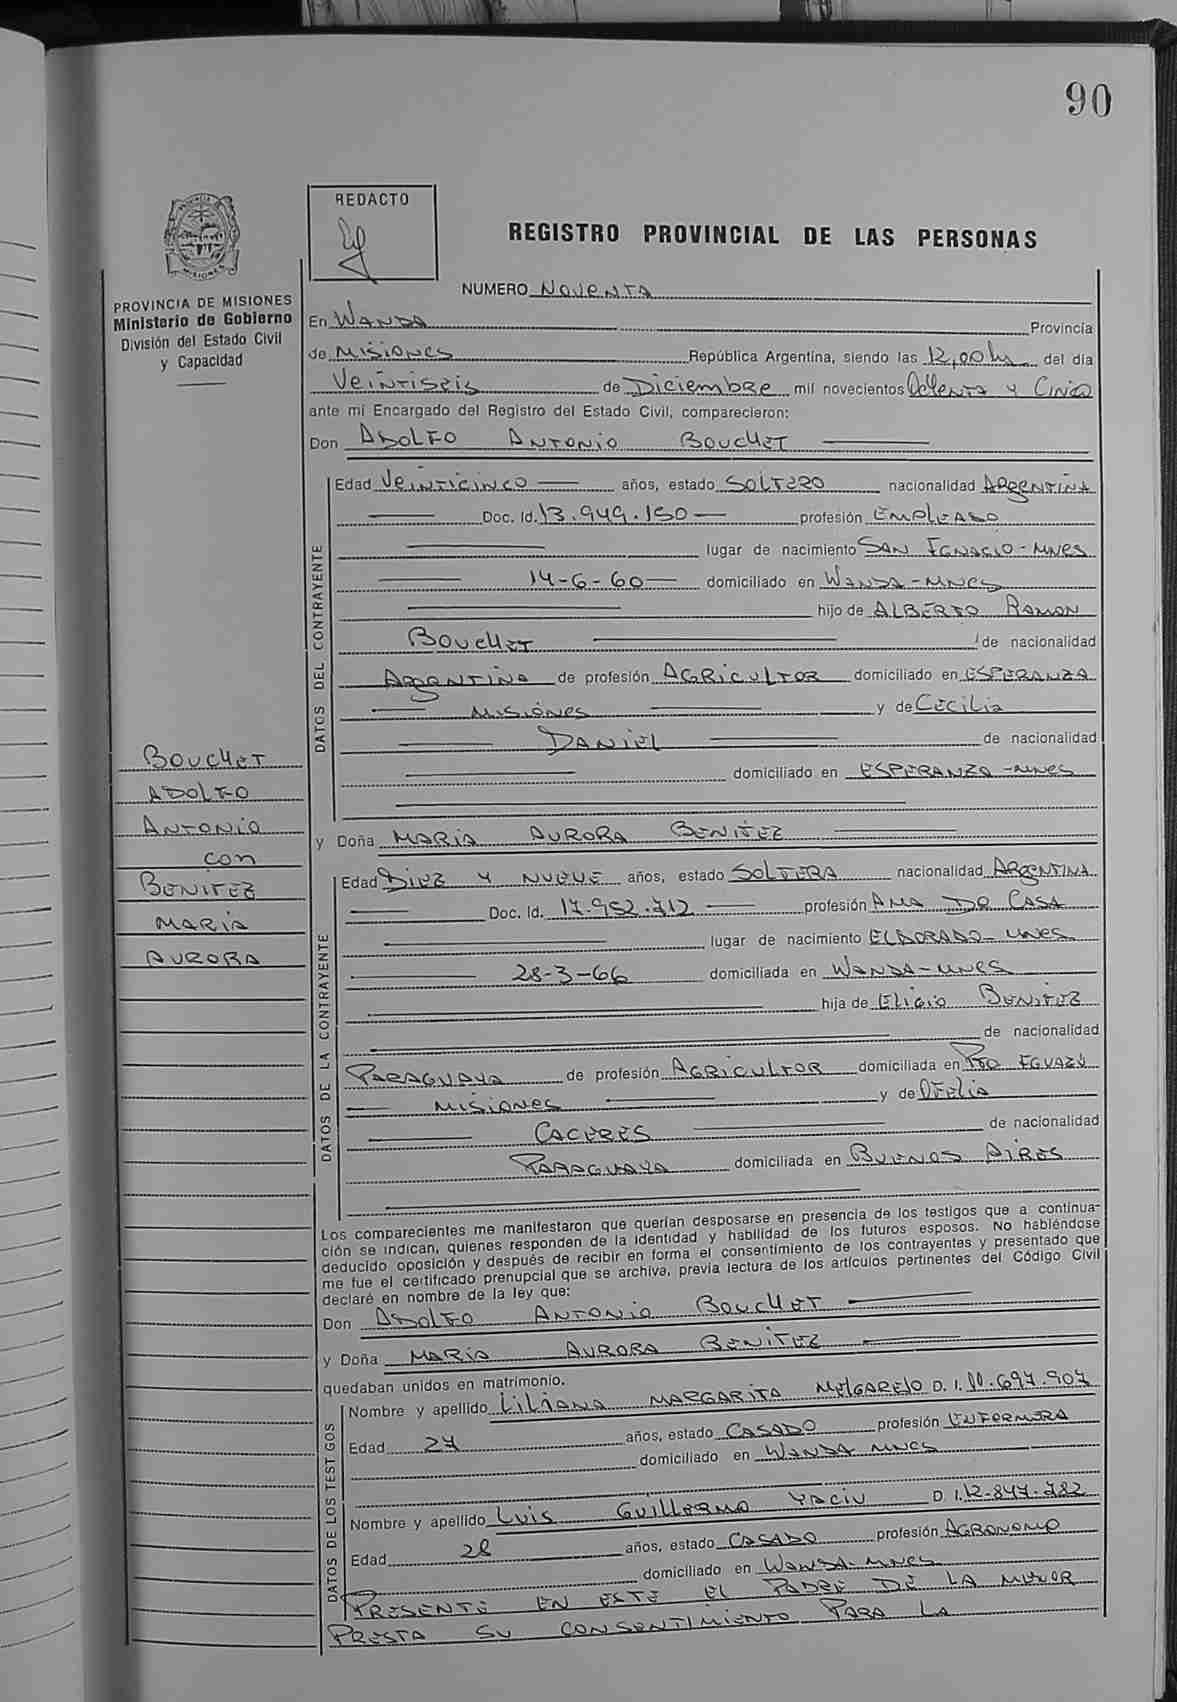 90
REDACTO
REGISTRO PROVINCIAL DE LAS PERSONAS
PROVINCIA DE MISIONES
Ministerio de Gobierno
División del Estado Civil
y Capacidad
NUMERO NOVENTA
En WANDA Provincia
de MISIONES República Argentina, siendo las 12,00 hs del día
Veintiseis de Diciembre mil novecientos Ochenta y Cinco
ante mi Encargado del Registro del Estado Civil, comparecieron:
Don ADOLFO ANTONIO BOUCHET
DATOS DEL CONTRAYENTE
Edad Veinticinco años, estado SOLTERO nacionalidad ARgENTINA
Doc. Id. 13.949.150 profesión EMPLEADO
lugar de nacimiento SAN IGNACIO - MNES
14-6-60 domiciliado en WANDA-MNES
hijo de ALBERTO RAMON
BOUCHET de nacionalidad
ARgENTINA de profesión AGRICULTOR domiciliado en ESPERANZA
MISIONES y de CECILIA
DANIEL de nacionalidad
domiciliado en ESPERANZA -MNES
BOUCHET
ADOLFO
ANTONIO
con
BENITEZ
MARIA
AURORA
y Doña MARIA AURORA BENITEZ
DATOS DE LA CONTRAYENTE
Edad DIEZ Y NUEVE años, estado SOLTERA nacionalidad ARgENTINA
Doc. Id. 17.952.712 profesión AMA DE CASA
lugar de nacimiento ELDORADO- MNES
28-3-66 domiciliada en WANDA-MNES
hija de ELIGIO BENITEZ
de nacionalidad
PARAGUAYA de profesión AGRICULTOR domiciliada en PTO IGUAZÚ
MISIONES y de OFELIA
CACERES de nacionalidad
PARAGUAYA domiciliada en BUENOS AIRES
Los comparecientes me manifestaron que querían desposarse en presencia de los testigos que a continua-
ción se indican, quienes responden de la identidad y habilidad de los futuros esposos. No habiéndose
deducido oposición y después de recibir en forma el consentimiento de los contrayentes y presentado que
me fue el certificado prenupcial que se archiva, previa lectura de los artículos pertinentes del Código Civil
declaré en nombre de la ley que:
Don ADOLFO ANTONIO BOUCHET
y Doña MARIA AURORA BENITEZ
quedaban unidos en matrimonio.
DATOS DE LOS TESTIGOS
Nombre y apellido LILIANA MARGARITA MELGAREJO D. I. 11.697.907
Edad 27 años, estado CASADO profesión ENFERMERA
domiciliado en WANDA MNES
Nombre y apellido LUIS GUILLERMO D. I. 12.847.782
Edad 28 años, estado CASADO profesión AGRONOMO
domiciliado en WANDA-MNES
PRESENTE EN ESTE EL PADRE DE LA MENOR
PRESTA SU CONSENTIMIENTO PARA LA